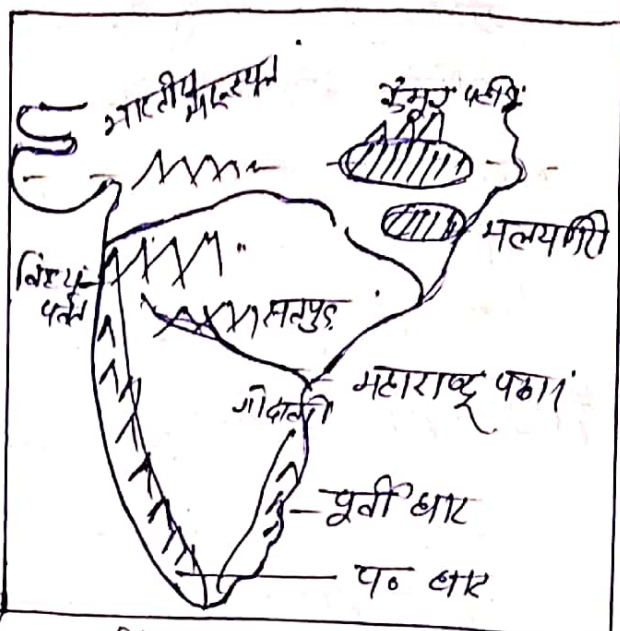 भारतीय मरुस्थल
कैमूर पहाड़ी
मलयगिरी
विंध्य
पर्वत
सतपुड़
महाराष्ट्र पठार
गोदावरी
पूर्वी घाट
प० घाट